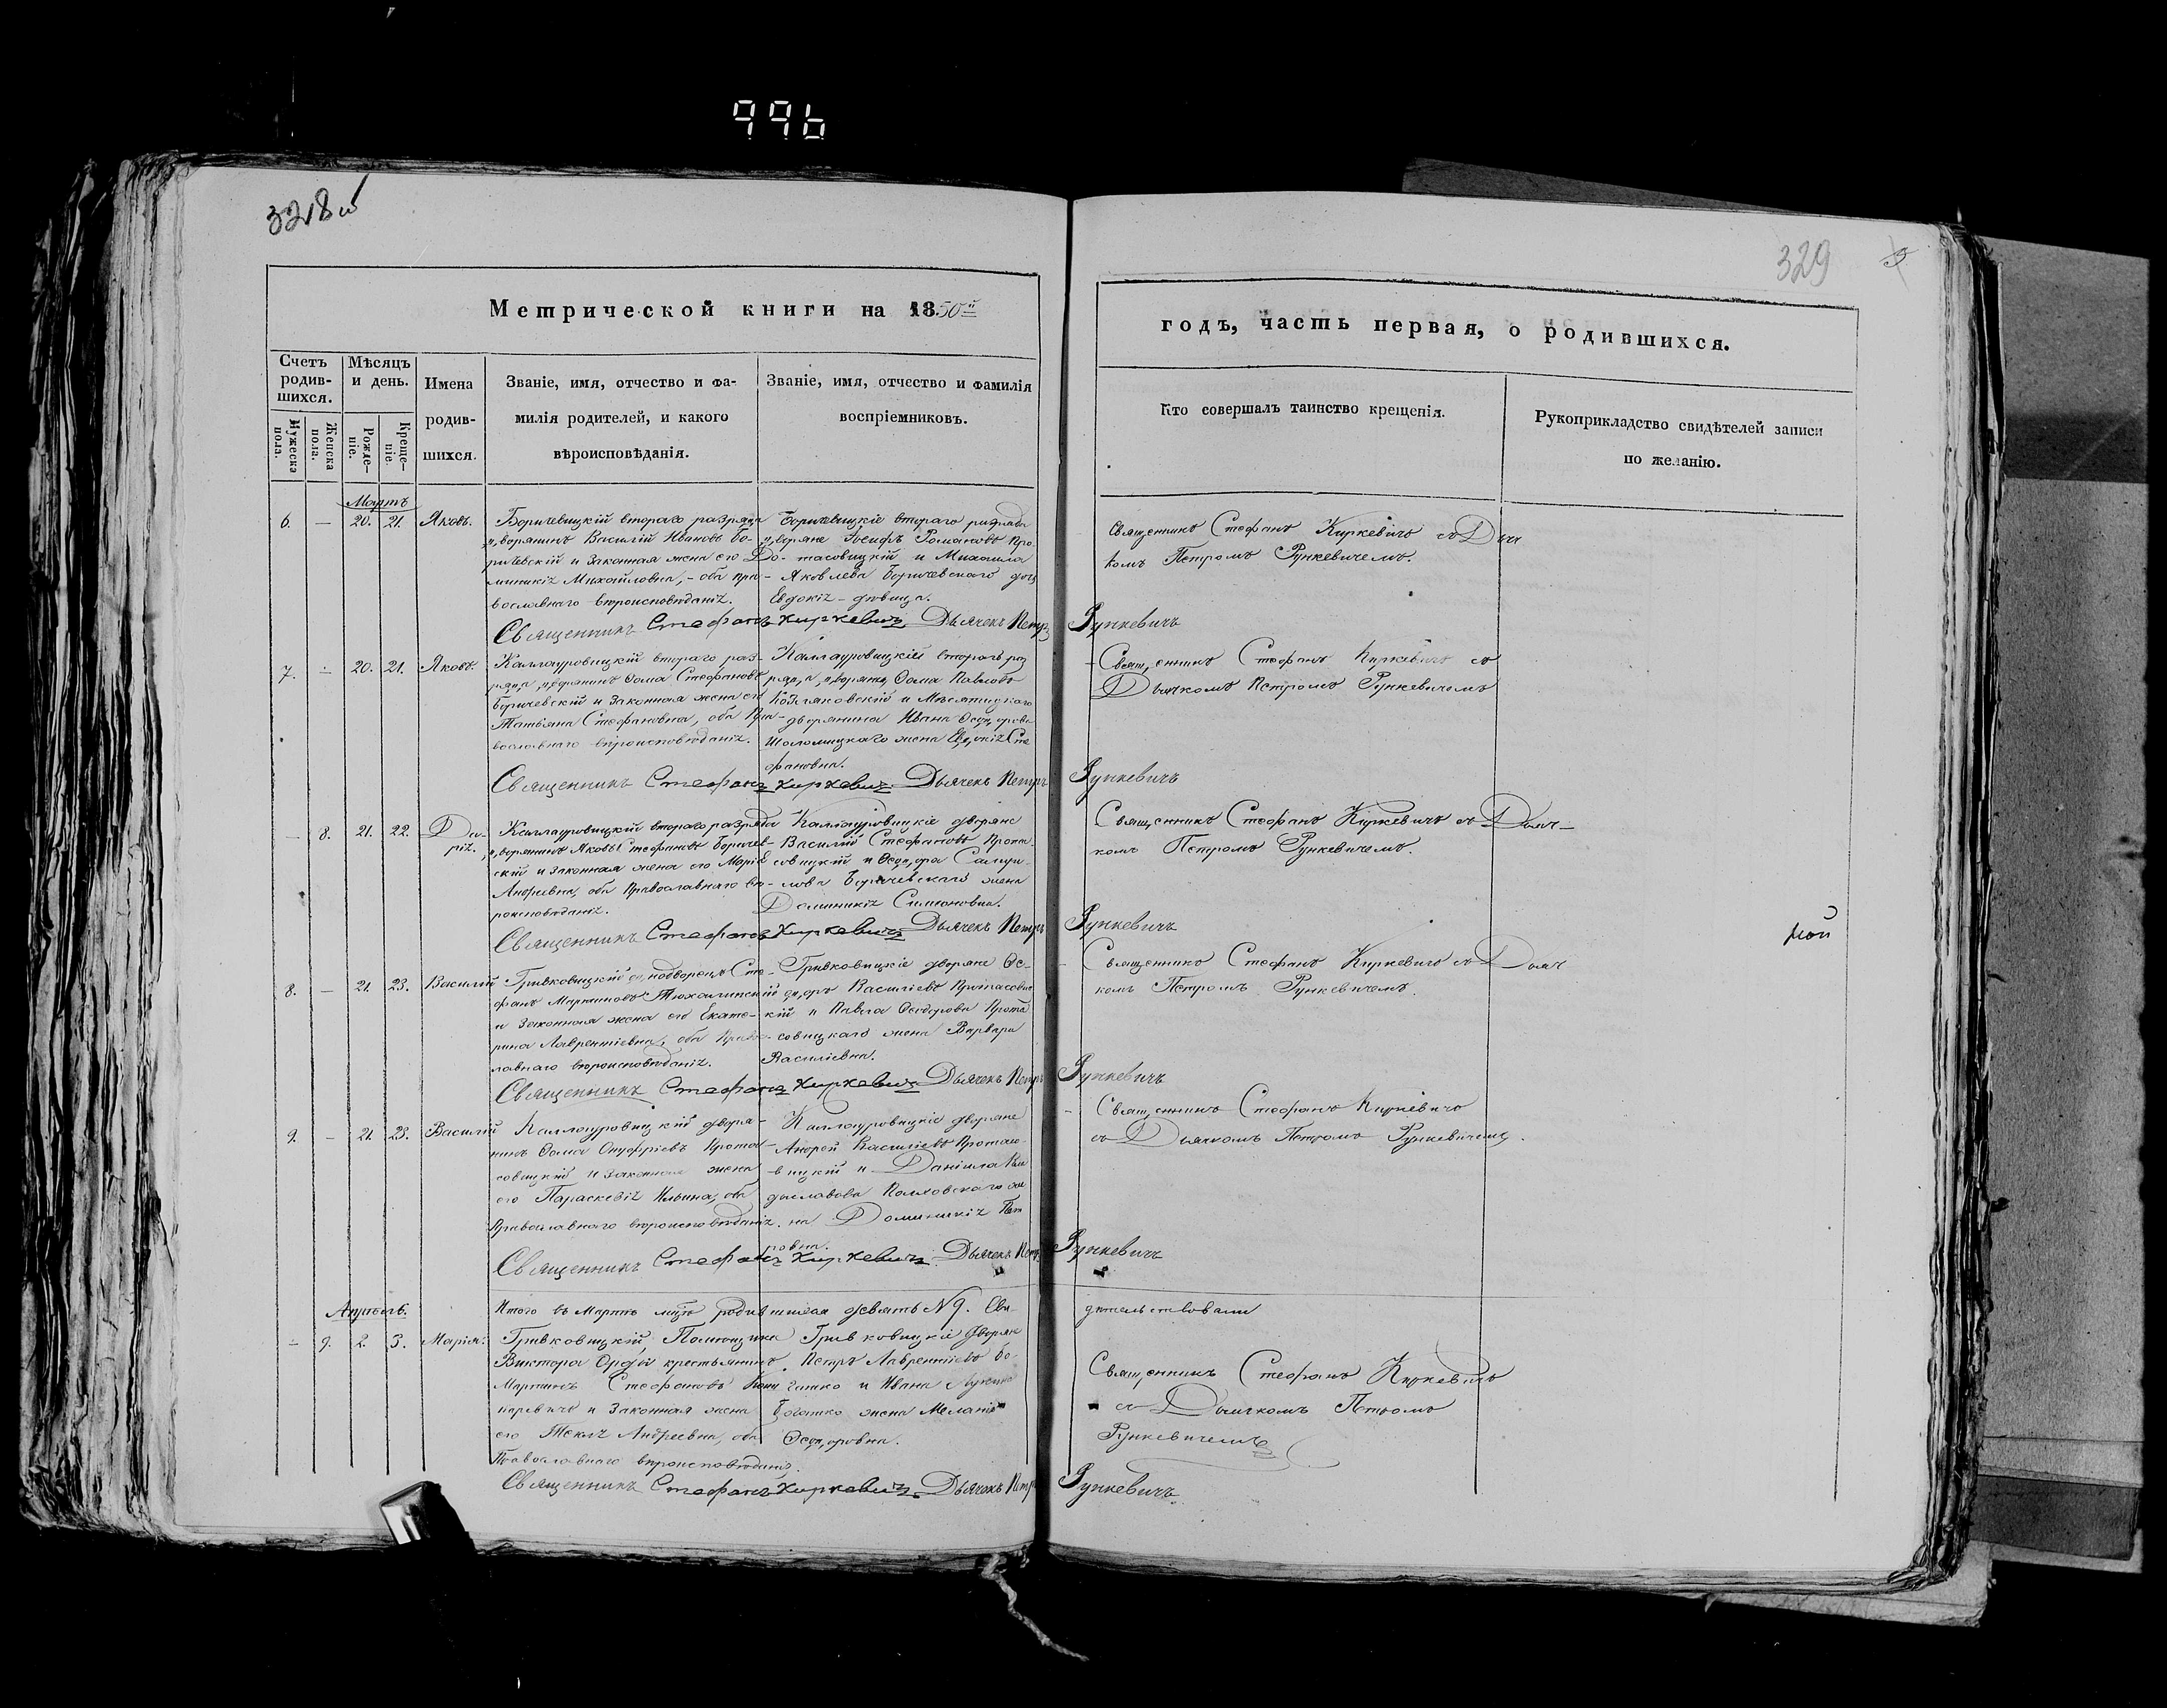 996
328 об
329
Метрической книги на 1850й
годъ, часть первая, о родившихся.
Счетъ родив-
шихся.
Мѣсяцъ
и день.
Имена
родив-
шихся.
Званіе, имя, отчество и фа-
милія родителей, и какого
вѣроисповѣданія.
Званіе, имя, отчество и фамилія
воспріемниковъ.
Кто совершалъ таинство крещенія.
Рукоприкладство свидѣтелей записи
по желанію.
Мужеска
пола.
Женска
пола.
Рожде-
ніе.
Креще-
ніе.
Мартъ
6. — 20. 21. Яковъ.
Боричевицкій втораго разряда
дворянинъ Василій Ивановъ Бо-
ричевскій и Законная жена его До-
миникія Михайловна, - оба пра-
вославнаго вѣроисповѣданія.
Боричевицкіе втораго разряда
дворяне Іосифъ Романовъ Про-
тасовицкій и Михаила
Яковлева Боричевскаго дочь
Евдокія - дѣвица.
Священникъ Стефанъ Киркевичъ съ Дья
комъ Петромъ Рункевичемъ.
Священникъ Стефанъ Киркевичъ Дьячекъ Петръ Рункевичъ
7. — 20. 21. Яковъ.
Каллауровицкій втораго раз-
ряда дворянинъ Ѳома Стефановъ
Боричевскій и Законная жена его
Татьяна Стефановна, оба Пра-
вославнаго вѣроисповѣданія.
Каллауровицкій втораго раз
ряда дворянинъ Ѳома Павловъ
дворянина Ивана Ѳедорова
жена Евдокія Сте
фановна.
Священникъ Стефанъ Киркевичъ съ
Дьячкомъ Петромъ Рункевичемъ
Священникъ Стефанъ Киркевичъ Дьячекъ Петръ Рункевичъ
— 8. 21. 22. Да-
рія.
Каллауровицкій втораго разряда
дворянинъ Яковъ Стефановъ Боричев-
скій и законная жена его Марія
Андреевна, оба Православнаго вѣ-
роисповѣданія.
Каллауровицкіе дворяне
Василій Стефановъ Прота
совицкій и Ѳедора Самуи-
лова Боричевскаго жена
Доминикія Симеоновна.
Священникъ Стефанъ Киркевичъ съ Дьяч-
комъ Петромъ Рункевичемъ.
Священникъ Стефанъ Киркевичъ Дьячекъ Петръ Рункевичъ
мой
8. — 21. 23. Василій
Гривковицкій однодворецъ Сте-
фанъ Мартиновъ
и Законная жена его Екате-
рина Лаврентіевна, оба Правос-
лавнаго вѣроисповѣданія.
Гривковицкіе дворяне Ѳе-
доръ Василіевъ Протасовиц
кій и Павла Ѳеодорова Прота
совицкаго жена Варвара
Василіевна.
Священникъ Стефанъ Киркевичъ съ Дьяч
комъ Петромъ Рункевичемъ.
Священникъ Стефанъ Киркевичъ Дьячекъ Петръ Рункевичъ
9. — 21. 23. Василій
Каллауровицкій дворя-
нинъ Ѳома Онуфріевъ Прота-
совицкій и законная жена
его Параскевія Ильина, оба
Православнаго вѣроисповѣданія.
Каллауровицкіе дворяне
Андрей Василіевъ Протасо-
вицкій и Даніила
Полховскаго же
на Доминикія Пет
ровна.
Священникъ Стефанъ Киркевичъ
съ Дьячкомъ Петромъ Рункевичемъ.
Священникъ Стефанъ Киркевичъ Дьячекъ Петръ Рункевичъ
Итого въ Мартѣ мцѣ родившихся девять N 9. Сви-
дѣтельствовали
Апрѣль.
— 9. 2. 3. Марія.
Гривковицкій, Помѣщика
Виктора Орды крестьянинъ
Мартинъ Стефановъ
и Законная жена
его Текля Андреевна, оба
Православнаго вѣроисповѣданія.
Гривковицкіе Дворяне
Петръ Лаврентіевъ Бо-
гатко и Ивана
Богатко жена Меланія
Ѳедоровна.
Священникъ Стефанъ Киркевичъ
съ Дьячкомъ Петромъ
Рункевичемъ
Священникъ Стефанъ Киркевичъ Дьячекъ Петръ Рункевичъ